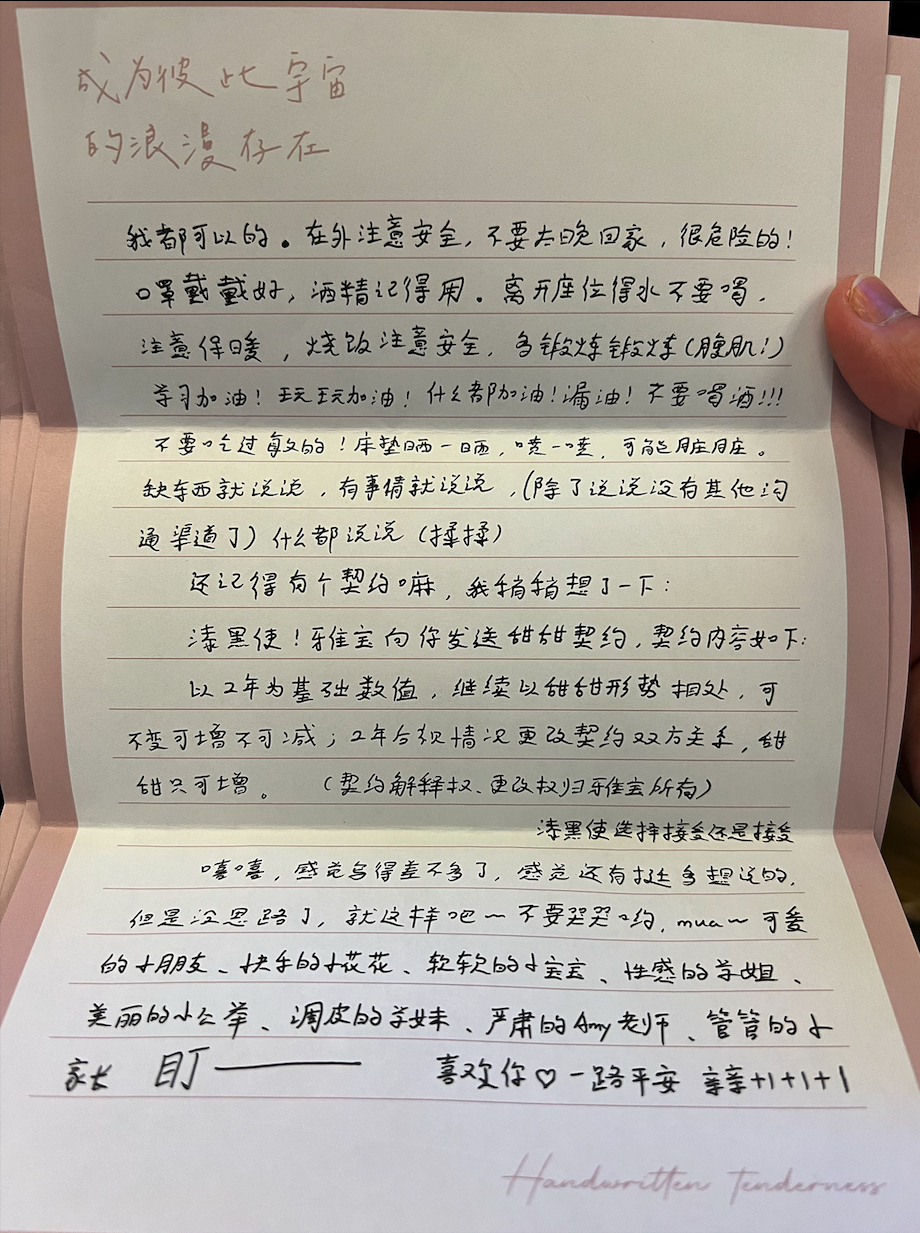 成为彼此宇宙
的浪漫存在
我都可以的。在外注意安全,不要太晚回家,很危险的!
口罩戴戴好,酒精记得用。离开座位得水不要喝,
注意保暖,烧饭注意安全,多锻炼锻炼(腹肌!)
学习加油!玩玩加油!什么都加油!漏油!不要喝酒!!!
不要吃过敏的!床垫晒一晒,喷一喷,可能脏脏。
缺东西就说说,有事情就说说,(除了说说没有其他沟
通渠道了)什么都说说(揉揉)
还记得有个契约嘛,我稍稍想了一下:
漆黑使!雅宝向你发送甜甜契约,契约内容如下:
以2年为基础数值,继续以甜甜形势相处,可
不变可增不可减;2年后视情况更改契约双方关系,甜
甜只可增。(契约解释权、更改权归雅宝所有)
漆黑使选择接受还是接受
嘻嘻,感觉写得差不多了,感觉还有挺多想说的,
但是没思路了,就这样吧~不要哭哭哟,mua~可爱
的小朋友、快乐的小花花、软软的小宝宝、性感的学姐、
美丽的小公举、调皮的学妹、严肃的Amy老师、管管的小
家长 盯—— 喜欢你♡一路平安 亲亲+1+1+1
Handwritten Tenderness